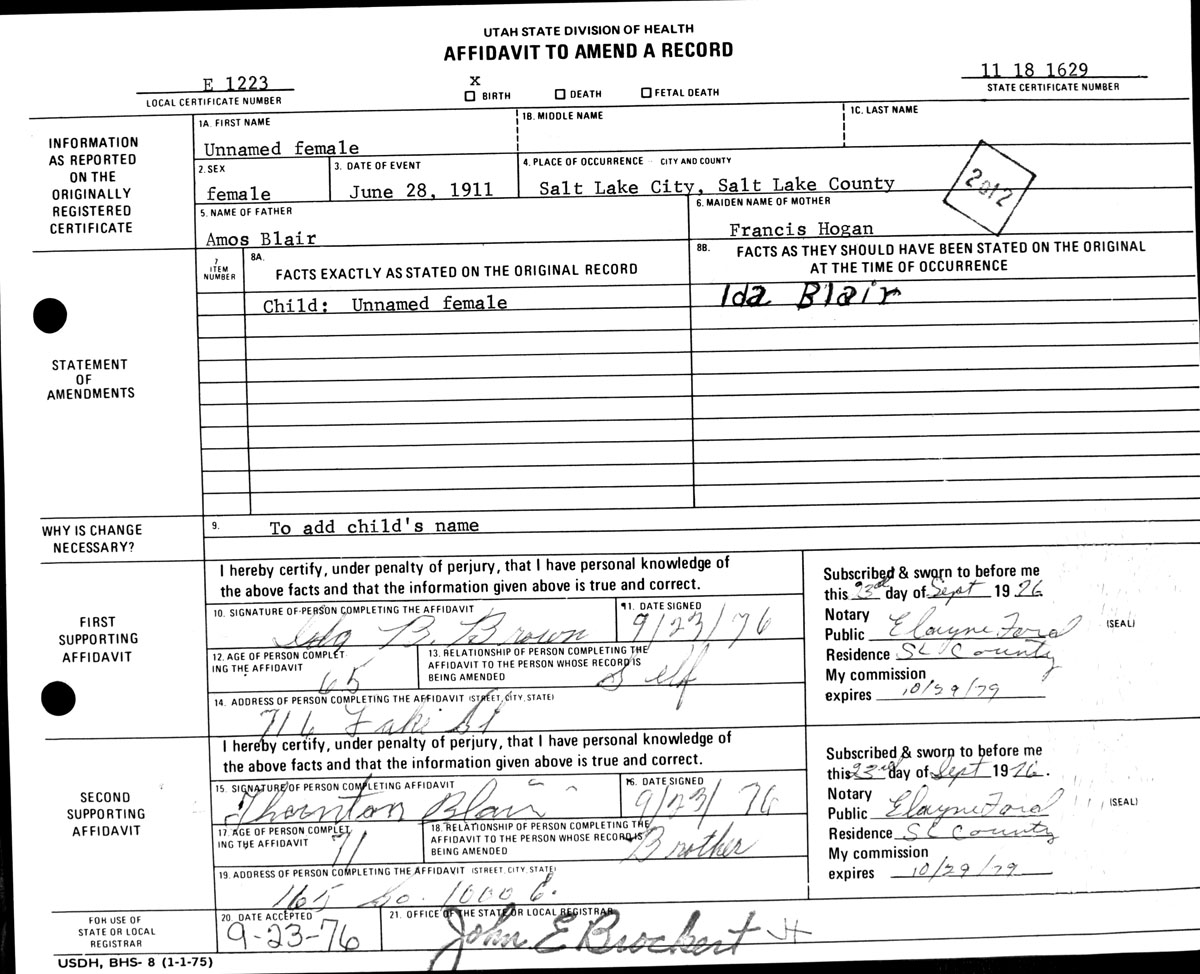 UTAH STATE DIVISION OF HEALTH
AFFIDAVIT TO AMEND A RECORD
E 1223
LOCAL CERTIFICATE NUMBER
X
BIRTH DEATH FETAL DEATH
11 18 1629
STATE CERTIFICATE NUMBER
INFORMATION
AS REPORTED
ON THE
ORIGINALLY
REGISTERED
CERTIFICATE
1A. FIRST NAME
Unnamed female
1B. MIDDLE NAME
1C. LAST NAME
2. SEX
female
3. DATE OF EVENT
June 28, 1911
4. PLACE OF OCCURRENCE - CITY AND COUNTY
Salt Lake City, Salt Lake County
2012
5. NAME OF FATHER
Amos Blair
6. MAIDEN NAME OF MOTHER
Francis Hogan
STATEMENT
OF
AMENDMENTS
7
ITEM
NUMBER
8A.
FACTS EXACTLY AS STATED ON THE ORIGINAL RECORD
8B.
FACTS AS THEY SHOULD HAVE BEEN STATED ON THE ORIGINAL
AT THE TIME OF OCCURRENCE
Child: Unnamed female
Ida Blair
WHY IS CHANGE
NECESSARY?
9.
To add child's name
FIRST
SUPPORTING
AFFIDAVIT
I hereby certify, under penalty of perjury, that I have personal knowledge of
the above facts and that the information given above is true and correct.
10. SIGNATURE OF PERSON COMPLETING THE AFFIDAVIT
Ida B. Brown
11. DATE SIGNED
9/23/76
12. AGE OF PERSON COMPLET-
ING THE AFFIDAVIT
65
13. RELATIONSHIP OF PERSON COMPLETING THE
AFFIDAVIT TO THE PERSON WHOSE RECORD IS
BEING AMENDED
Self
14. ADDRESS OF PERSON COMPLETING THE AFFIDAVIT (STREET, CITY, STATE)
714 St
Subscribed & sworn to before me
this 23rd day of Sept 1976
Notary
Public Elayne Ford
(SEAL)
Residence SL County
My commission
expires 10/29/79
SECOND
SUPPORTING
AFFIDAVIT
I hereby certify, under penalty of perjury, that I have personal knowledge of
the above facts and that the information given above is true and correct.
15. SIGNATURE OF PERSON COMPLETING AFFIDAVIT
Thornton Blair
16. DATE SIGNED
9/23/76
17. AGE OF PERSON COMPLET-
ING THE AFFIDAVIT
71
18. RELATIONSHIP OF PERSON COMPLETING THE
AFFIDAVIT TO THE PERSON WHOSE RECORD IS
BEING AMENDED
Brother
19. ADDRESS OF PERSON COMPLETING THE AFFIDAVIT (STREET, CITY, STATE)
165 So. 1000 E.
Subscribed & sworn to before me
this 23rd day of Sept 1976.
Notary
Public Elayne Ford
(SEAL)
Residence SL County
My commission
expires 10/29/79
FOR USE OF
STATE OR LOCAL
REGISTRAR
20. DATE ACCEPTED
9-23-76
21. OFFICE OF THE STATE OR LOCAL REGISTRAR
John E Brockert
USDH, BHS- 8 (1-1-75)